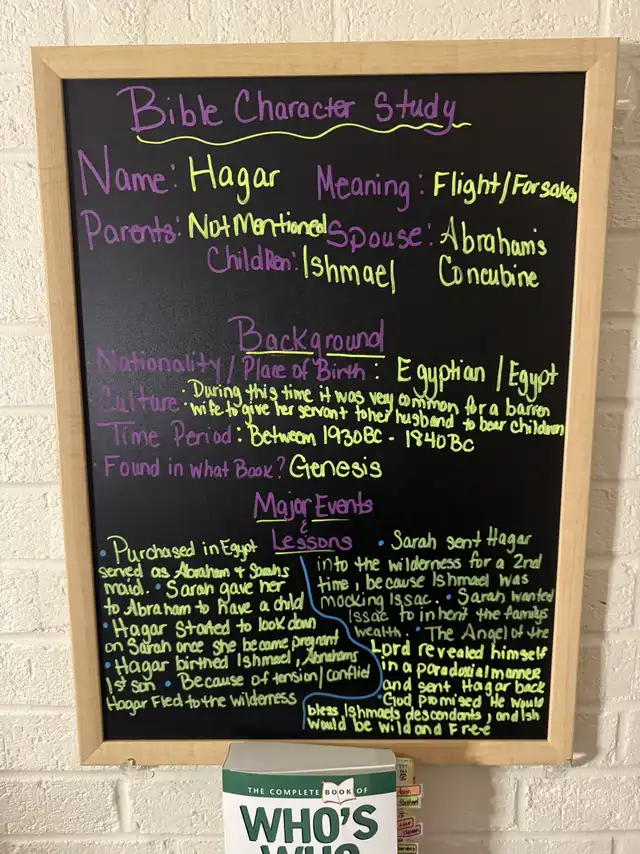 Bible Character Study
Name: Hagar
Meaning: Flight/Forsaken
Parents: Not Mentioned
Spouse: Abraham's
Concubine
Children: Ishmael
Background
Nationality / Place of Birth: Egyptian / Egypt
Culture: During this time it was very common for a barren
wife to give her servant to her husband to bear children
Time Period: Between 1930BC - 1840BC
Found in what Book? Genesis
Major Events
&
Lessons
• Purchased in Egypt
served as Abraham & Sarahs
maid. • Sarah gave her
to Abraham to have a child
• Hagar started to look down
on Sarah once she became pregnant
• Hagar birthed Ishmael, Abrahams
1st son • Because of tension/conflict
Hagar Fled to the wilderness
• Sarah sent Hagar
into the wilderness for a 2nd
time, because Ishmael was
mocking Issac. • Sarah wanted
Issac to inherit the familys
wealth. • The Angel of the
Lord revealed himself
in a paradoxial manner
and sent Hagar back
God promised He would
bless Ishmaels descendants, and Ish
would be wild and Free
THE COMPLETE BOOK OF
WHO'S
WHO